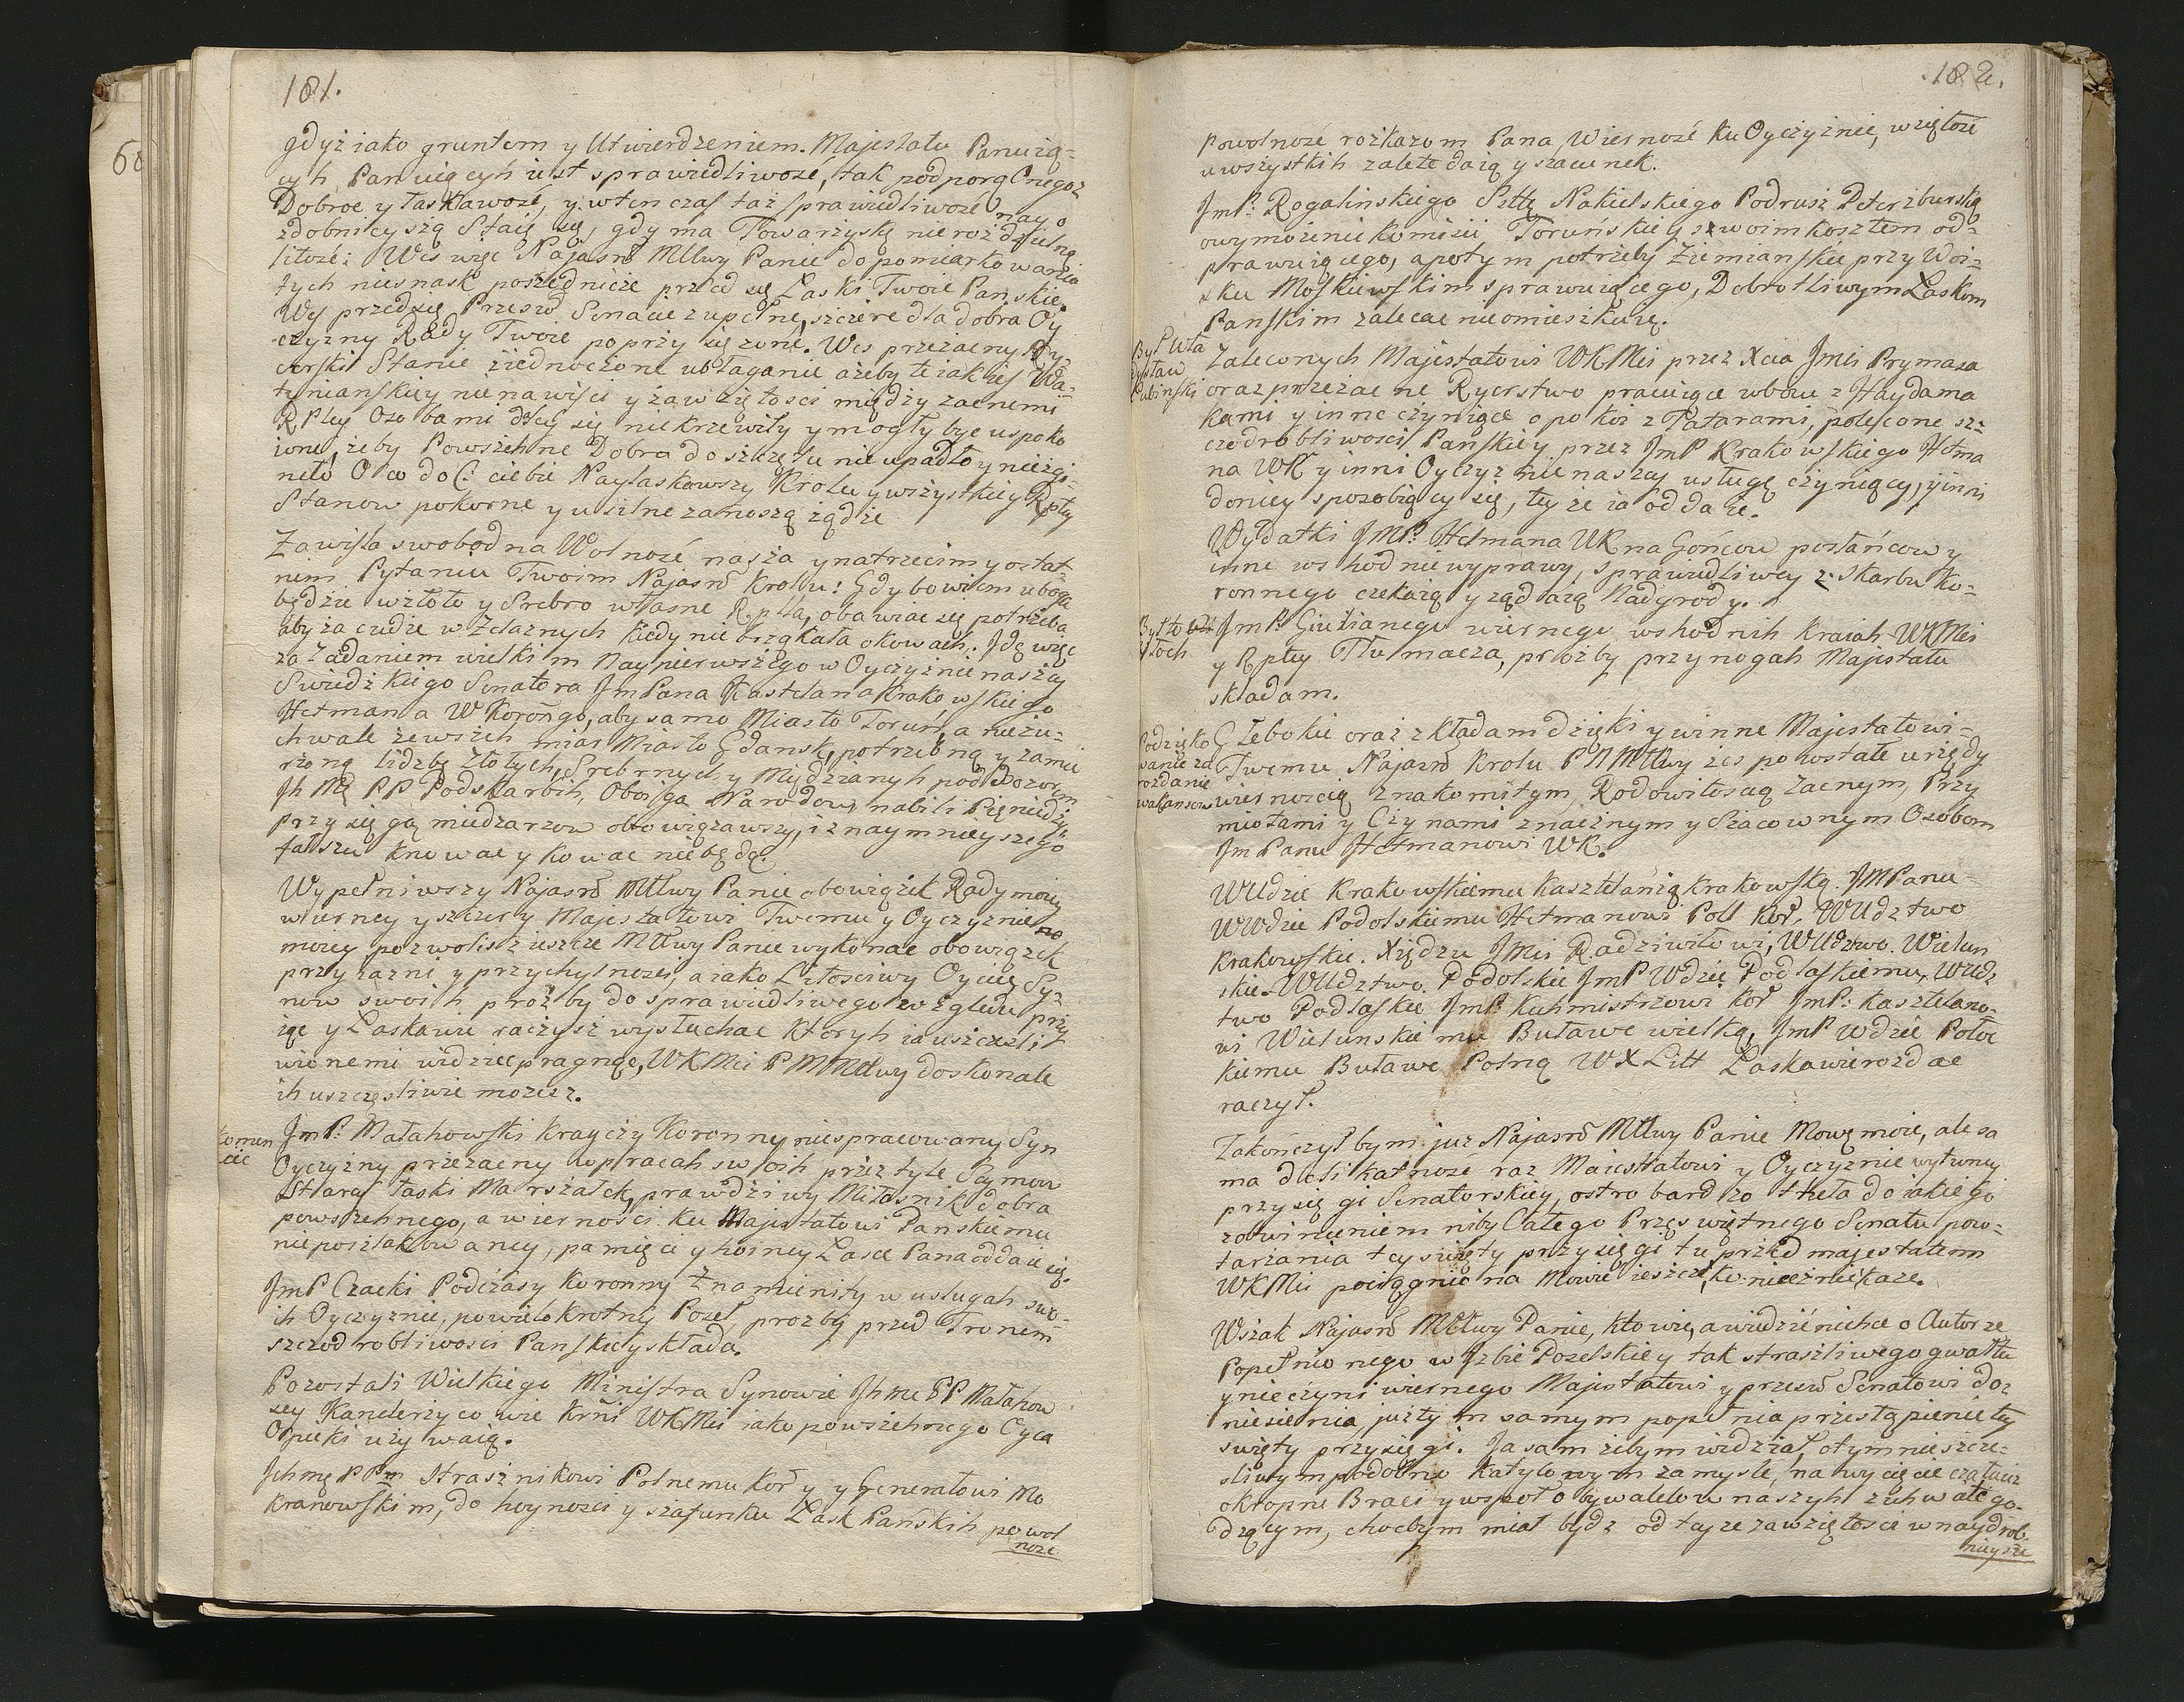 181.
gdyż iako gruntem y Utwierdzeniem Majestatu Panuią-
cyh Panuiącyh iest sprawiedliwosć, tak podporą Onegoż
Dobroć y łaskawość, y wten czas taż sprawiedliwość nayo
zdobnieyszą Staię się, gdy ma Towarzyskę nierozdzielną
litość: Weś więc Najasń Młwy Panie do pomiarkowania
tych niesnask poszrednicze przed się Łaski Twoie Panskie,
Weź przedsię Przesw̃ Senacie zupełne, szczere dla dobra Oy
czyzny Rady Twoie poprzysiężoné. Weś przezacny Ry-
cerski Stanie ziednoczone ubłaganie ażeby te iakieś Wa-
tynianskiey nienawiści y zawziętosci między zacnemi
RPltey Osobami dłey się nie krzewiły y mogły byc uspoko
ione, żeby Powszehne Dobra do szczętu nie upadło y niezgi-
neło O co do Ciebie Naylaskawszy Krolu y wszystkiey Rpłtey
Stanow pokorne y usilne zanoszą żądze
Zawisła swobodna Wolność nasza y natrzecim y ostat
nem Pytaniu Twoim Najasñ Krolu! Gdy bowiem uboga
będzie w złoto y Srebro własne Rplta, obawiac się potrzeba
aby za cudze w żelaznych kiedy nie brząkała okowach. Idę więc
za zadaniem wielkim Naypierwszego w Oyczyznie naszey
Swiedzkiego Senatora Jm Pana Kasztelana Krakowskiego
Hetmana W Korońgo, aby samo Miasto Toruń, a niezu-
chwałe zewszeh miar Miasto Gdansk, potrzebną y zamie
rzoną lidzbę Złotych, Srebrnych y Miedzianych pod Dozorem
Jh Mę PP Podskarbih, Oboyga Narodow nabili Pieniędzy
przysięgą miedzarzow obowiązawszy, iż naymnieyszego
fałszu knować y kować nie będą.
Wypełniwszy Najasñ Młwy Panie obowiązek Rady moiey
wierney y szczery Majestatowi Twemu y Oyczyznie no
moiey pozwolisz ieszcze Młwy Panie wykonać obowiązek
przyiazni y przychylnosci, a iako Litosciwy Oyciec Sy-
now swoih prozby do sprawiedliwego wzgledu przy
iąc y Łaskawie raczysz wysłuchac Ktoryh ia uszczęśli
wionemi widziec pragnąc, WKMci P M Młwy doskonale
ih uszczęsliwie możesz.
komen
cie
JmP: Małahowski kraycży Koronny niespracowany Syn
Oyczyzny przezacny w pracah swoih przez tyle Seymow
Staraś łaski Marszałek, prawdziwy Miłosnik dobra
powszehnego, a wierności ku Majestatowi Panskiemu
nieposzlakowaney, pamięci y hoiney Łasce Pana oddaie się.
JmP Czacki Podczasy koronny Znamienity w usługah swo-
ih Oyczyznie, powielokrotny Poseł, prozby przed Tronem
szczodrobliwosci Panskiey składa.
Pozostali Wielkiego Ministra Synowie Jhmc PP Małahow
scy Kanclerzycowie Krñi WKMci iako powszehnego Oyca
Opieki uzywaią.
Jchmę PPm Straznikowi Polnemu Kor̃ y y Generałowi Mo
kranowskim, do hoynosci y szafunku Łask Pańskih powol
nosc
.182.
powolnosc rozkazom Pana, Wiernosć ku Oyczyznie, wziętosc
u wszystkih zaletę daią y szacunek.
JmP: Rogalinskiego Sttę Nakielskiego Podrusz Peterzburską
owymożenie komisii Toruńskiey swoim kosztem od-
prawuiącego, a potym potrzeby Ziemianskie przy Woi-
sku Moskiewskim sprawuiącego, Dobrotliwym Łaskom
Panskim zalecać nieomieszkuię.
By Puta
dysław
Lubinski
Zaleconych Majestatowi WKMci przez Xcia Jmci Prymasa
oraz przezacne Rycerstwo pracuiące w boiu z Haydama
kami y inne czyniące o pokoi z Tatarami, polecone sz-
czodrobliwosci Panskiey przez JmP Krakowskiego Htma
na WK y inni Oyczyznie naszey usługę czyniący, y inni
doniey sposobiący się, teyże ia oddaię.
Wydatki JMP: Hetmana WK na Gońcow posłańcow y
inne wshodnie wyprawy, sprawiedliwey z Skarbu ko-
ronnego czekaią y żądaią Nadgrody.
Był to
Włoch
JmP: Giulianego wiernego wshodnih kraiah WKMci
y Rpltey Tłumacza, prozby przy nogah Majestatu
składam.
Podzięko
wanie za
rozdanie
wakansow
Głebokie oraz zkładam dzięki y winne Majestatowi-
Twemu Najasń Krolu PNMłwy żeś pozostałe urzędy
wiernoscią znakomitym, Rodowitoscią Zacnym, Przy
miotami y Czynami znacznym y Szacownym Osobom
Jm Panu Hetmanowi WK.
WWdzie Krakowskiemu Kasztelanią Krakowską. JMPanu-
WWdzie Podolskiemu Hetmanowi Poll Kor̃. WWdztwo
Krakowskie. Xiędzu JMci Radziwiłowi, WWdztwo. Wielun
skie. WWdztwo. Podolskie JmP Wdzie Podlaskiemu, WWdz
two Podlaskie JmP: Kuhmistrzowi Kor̃ JmP: Kasztelano-
wi Wielunskiemu Buławę wielką, JmP Wdzie Połoc
kiemu Buławę Polną WXLitt Łaskawie rozdać
raczył.
Zakończyłbym już Najasñ Młwy Panie Mowę moię, ale sa
ma delikatnosć raz Maiestatowi y Oyczyznie wytwney
przysięgi Senatorskiey, ostro bardzo tkneła do iakiego
zobwinieniem niby Całego Przeswiętnego Senatu pow-
tarzania tey swięty przysięgi tu przed majestatem
WKMci pociągnione Mowić ieszcze koniecznie każe.
Wszak Najasñ Młwy Panie, kto wie, a wiedzieć niehce o Autorze
Popełnionego w Jzbie Poselskiey tak straszliwego gwałtu
y nieczyni wiernego Majestatowi y przesw̃ Senatowi do-
niesienia, już tym samym popełnia przestąpienie tey
swięty przysięgi. Ja sam żebym widział, o tym nieszczę-
sliwym podobno Katylowym zamysle, na wycięcie czatuiąc
okropne Braci y wspoł obywatelow naszyh zuhwale go-
dzącym, choćbym miał bydz od teyże zawziętosci w naydrob-
nieysze